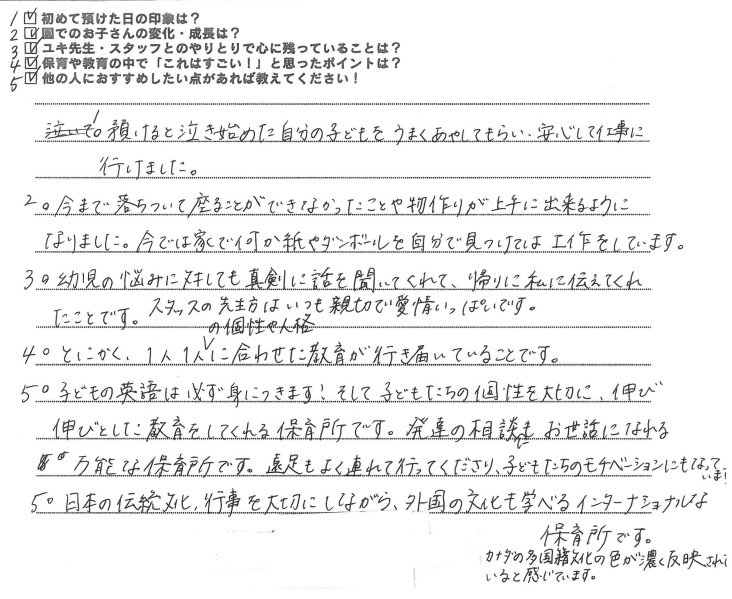 1 ☑ 初めて預けた日の印象は？
2 ☑ 園でのお子さんの変化・成長は？
3 ☑ ユキ先生・スタッフとのやりとりで心に残っていることは？
4 ☑ 保育や教育の中で「これはすごい！」と思ったポイントは？
5 ☑ 他の人におすすめしたい点があれば教えてください！
1。預けると泣き始めた自分の子どもを うまくあやしてもらい、安心して仕事に
行けました。
2。今まで落ちついて座ることができなかったことや物作りが上手に出来るように
なりました。今では家で何か紙やダンボールを自分で見つけては工作をしています。
3。幼児の悩みに対しても真剣に話を聞いてくれて、帰りに私に伝えてくれ
たことです。スタッフの先生方はいつも親切で愛情いっぱいです。
4。とにかく、1人1人の個性や人格に合わせた教育が行き届いていることです。
5。子どもの英語は必ず身につきます！そして子どもたちの個性を大切に、伸び
伸びとした教育をしてくれる保育所です。発達の相談にもお世話になれる
万能な保育所です。遠足もよく連れて行ってくださり、子どもたちのモチベーションにもなって
います！
5。日本の伝統文化、行事を大切にしながら、外国の文化も学べるインターナショナルな
保育所です。
カナダの多国籍文化の色が濃く反映されて
いると感じています。